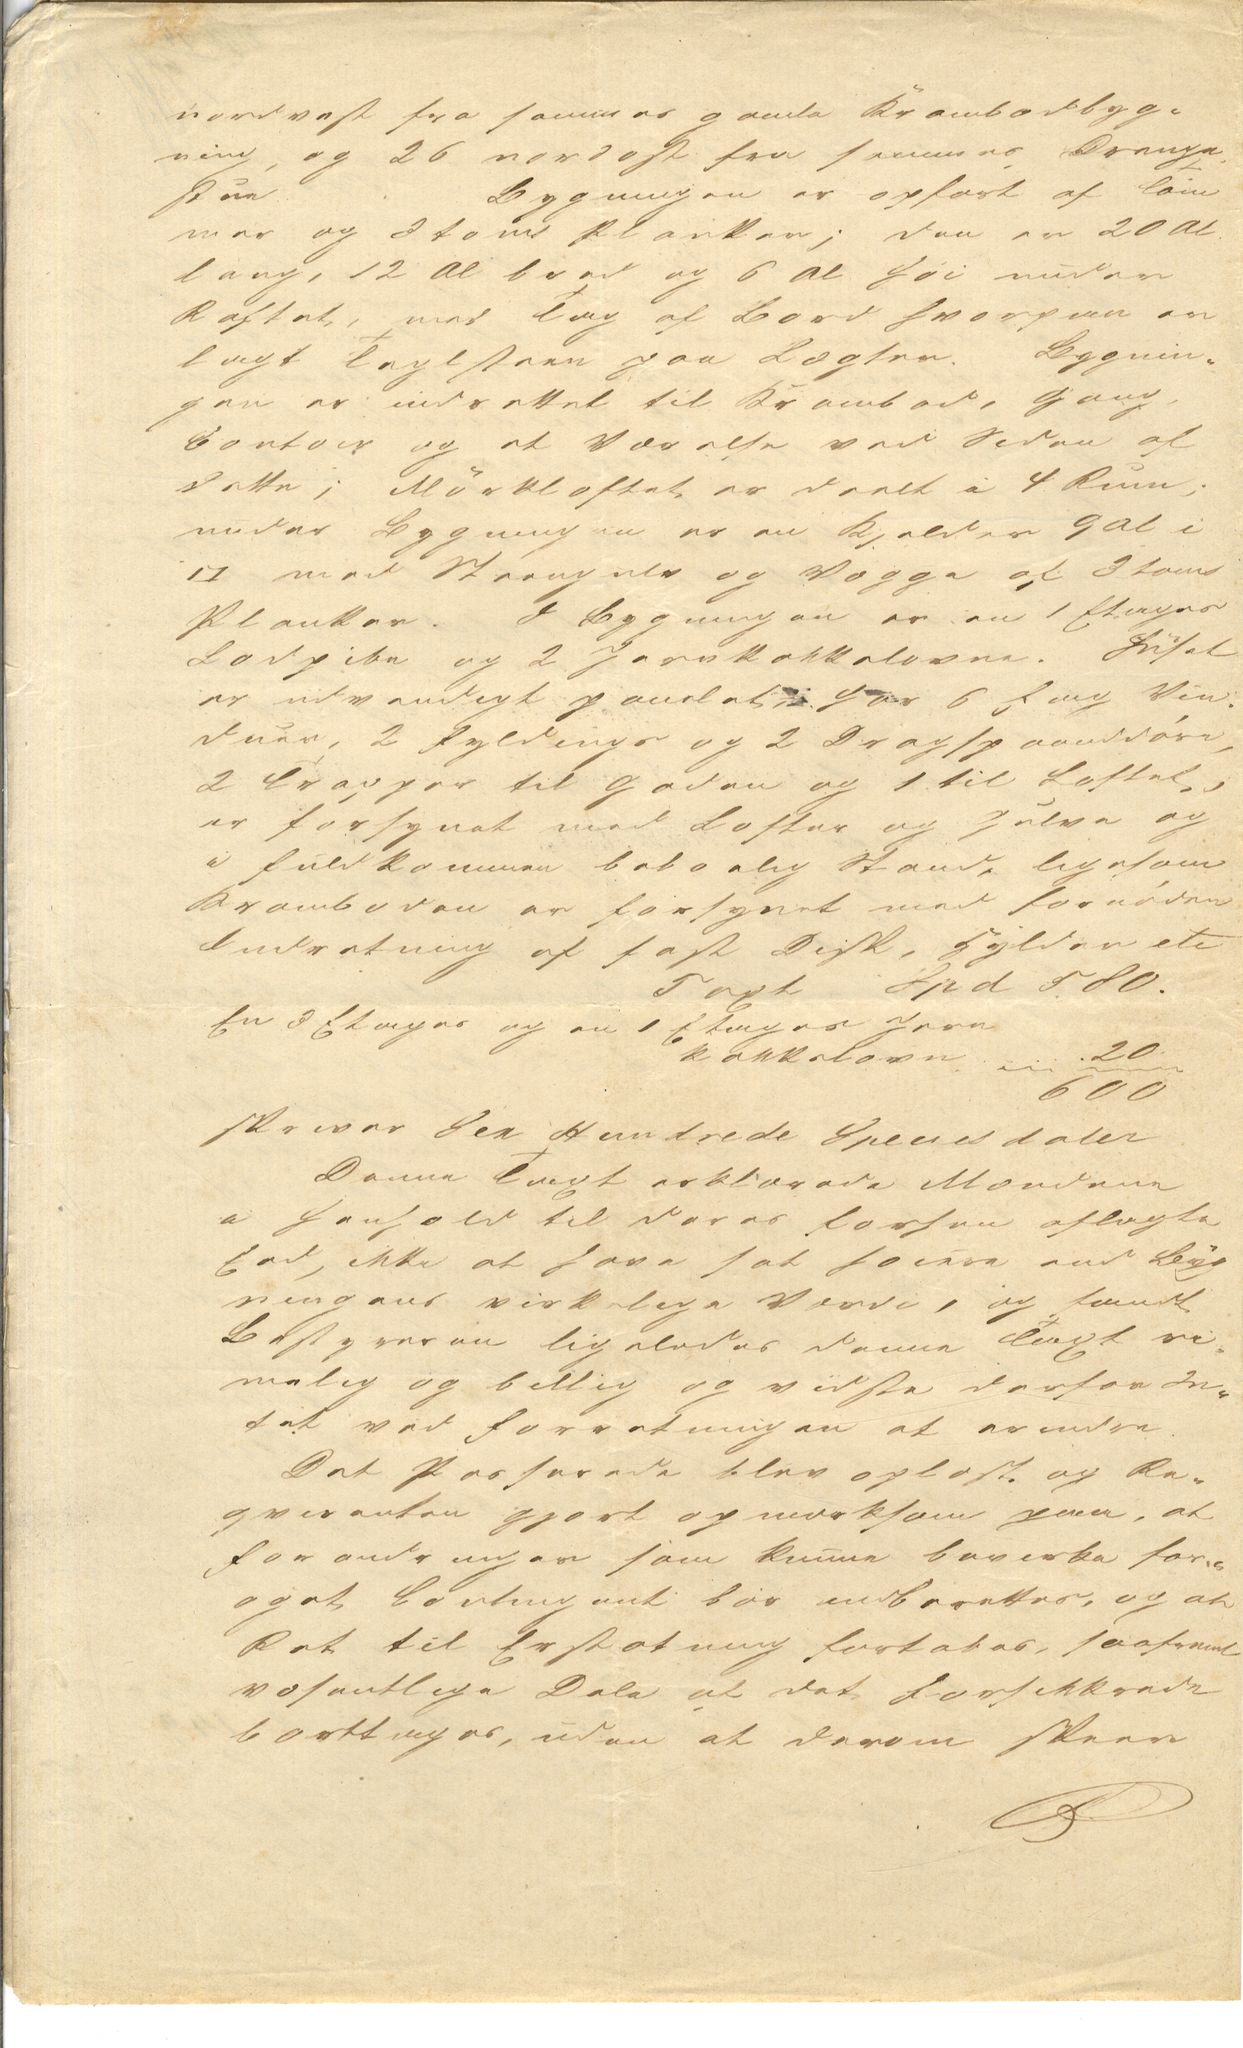 nordvest fra sammes gamle Krambodbyg-
ning, og 26 nordost fra sammes Drenge
stue. Bygningen er opført af Tøm
mer og 3 toms Planker; den er 20 Al.
lang, 12 Al bred og 6 Al høi under
Raftet, med Tag af Bord hvorpaa er
lagt Taglsteen paa Lægter. Bygnin-
gen er indrettet til Krambod, Gang,
Contoir og et Værelse ved Siden af
dette; Mörkloftet er deelt i 4 Rum;
under Bygningen er en Kjelder 9 Al i
□ med Steengulv og Vægge af 3 toms
Planker. I Bygningen er en 1 Etages
Lodpibe og 2 Jernkakkelovne. Huset
er udvendigt panelet, har 6 Fag Vin-
duer, 2 Fyldings og 2 Dragspaanddöre,
2 Trapper til Gaden og 1 til Loftet,
er forsynet med Lofter og Gulve og
i fuldkommen beboelig Stand, ligesom
Kramboden er forsynet med fornöden
Indretning af fast Disk, Hylder etc
Taxt Spd 580.
En 3 Etages og en 1 Etages Jern
kakkelovn 20
600
skriver Sex Hundrede Speciesdaler
Denne Taxt erklærede Mændene
i Henhold til deres forhen aflagte
Eed, ikke at have sat höiere end Byg
ningens virkelige Værdi, og fandt
Bestyreren ligeledes denne Taxt ri-
melig og billig og vidste derfor In-
tet ved Forretningen at erindre.
Det Passerede blev oplæst og Re-
qvirenten gjort opmærksom paa, at
Forandringer som kunne bevirke for-
øget Contingent bör indberettes, og at
Ret til Erstatning fortabes, saafremt
væsentlige Dele af det Forsikkrede
borttages, uden at derom skeer